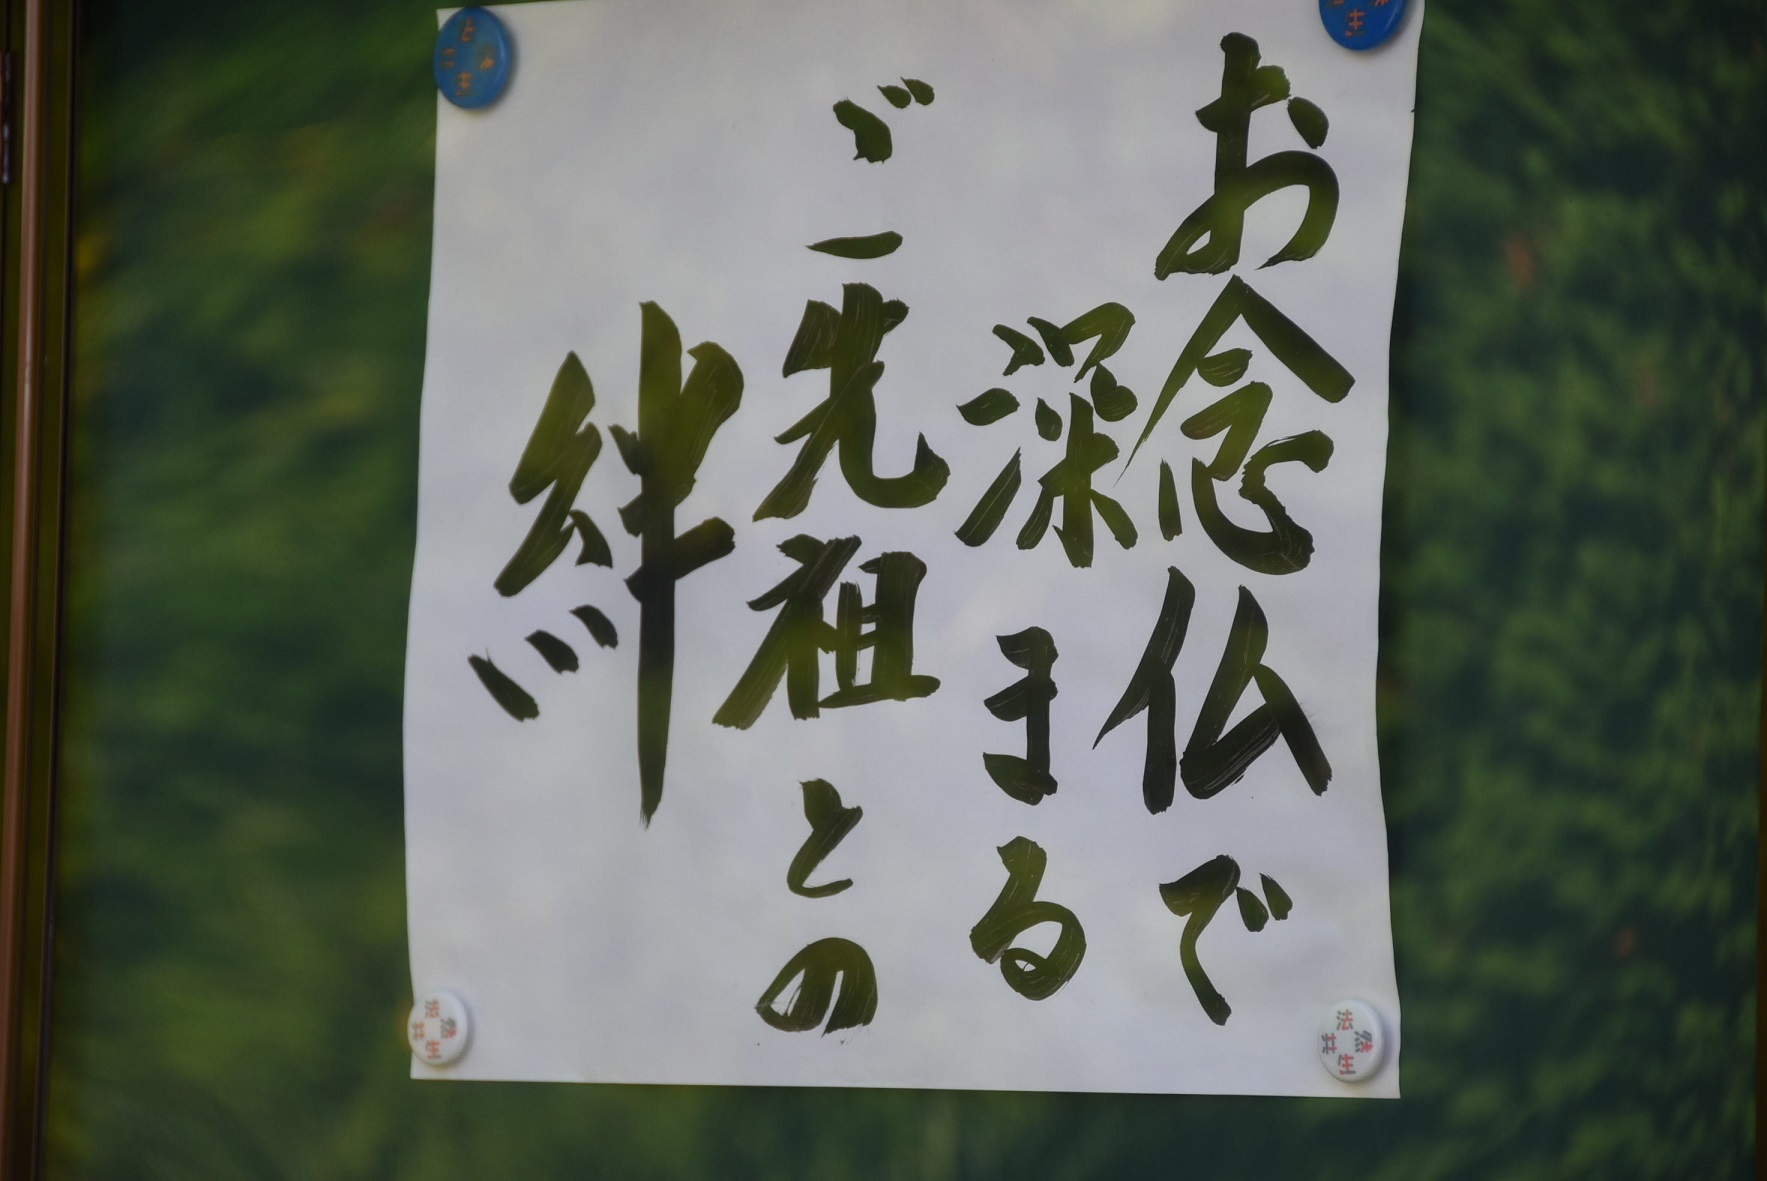 お念仏で
深まる
ご先祖との
絆